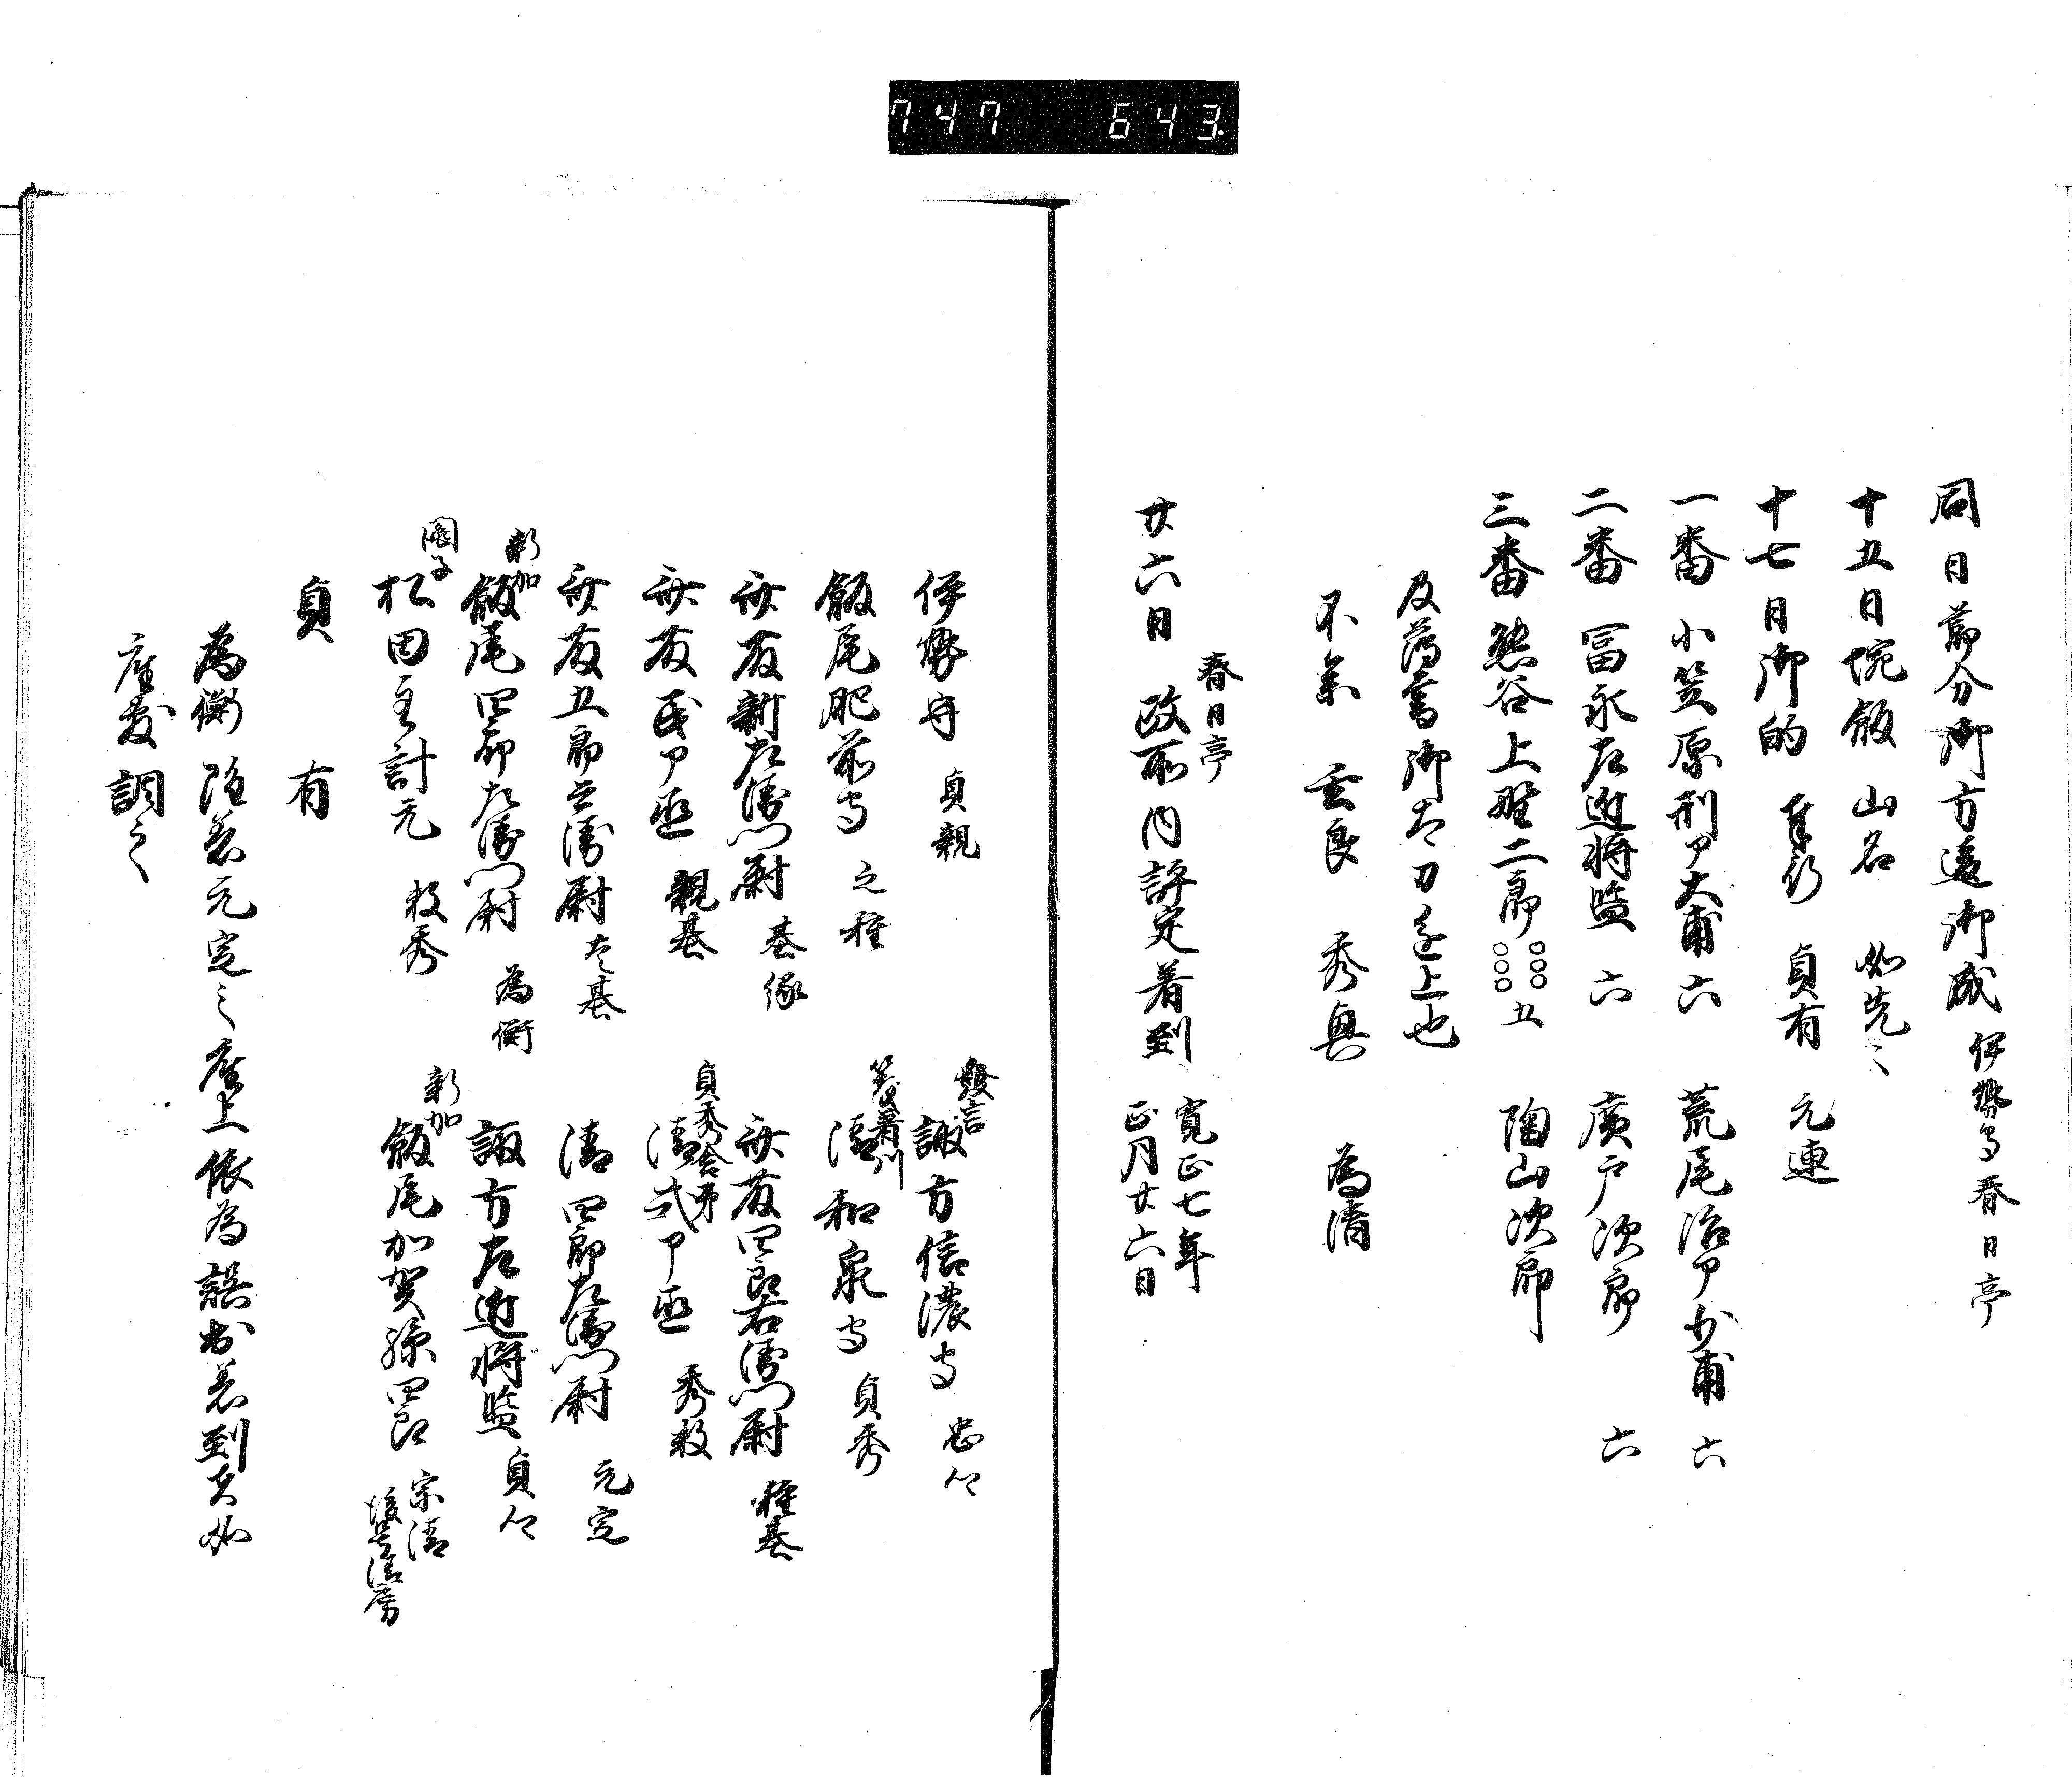 747 643.
同日節分御方違御成 伊勢守春日亭
十五日埦飯 山名 如先々
十七日御的 奉行 貞有 元連
一番 小笠原刑ア大甫 六 荒尾治ア少甫 六
二番 冨永左近将監 六 広戸次郎 六
三番 熊谷上野二郎 ○○○○○○ 五 陶山次郎
及落書御太刀進上也
不参 貞良 秀興 為清
廿六日 春日亭 政所内評定着到 寛正七年 正月廿六日
伊勢守 貞親
発言 諏方信濃守 忠人
飯尾肥前守 之種
着到 清和泉守 貞秀
斎藤新左衛門尉 基縁
斎藤四郎右衛門尉 種基
斎藤民ア丞 親基
貞秀舎弟 清式ア丞 秀数
斎藤五郎兵衛尉
清四郎左衛門尉 元定
新加 飯尾四郎左衛門尉 為衡
諏方左近将監 貞人
鬮子 松田主計允 数秀
新加 飯尾加賀孫四郎 宗清
貞有
為衡雖着元定之座上依為誤於着到者如
座敷調之